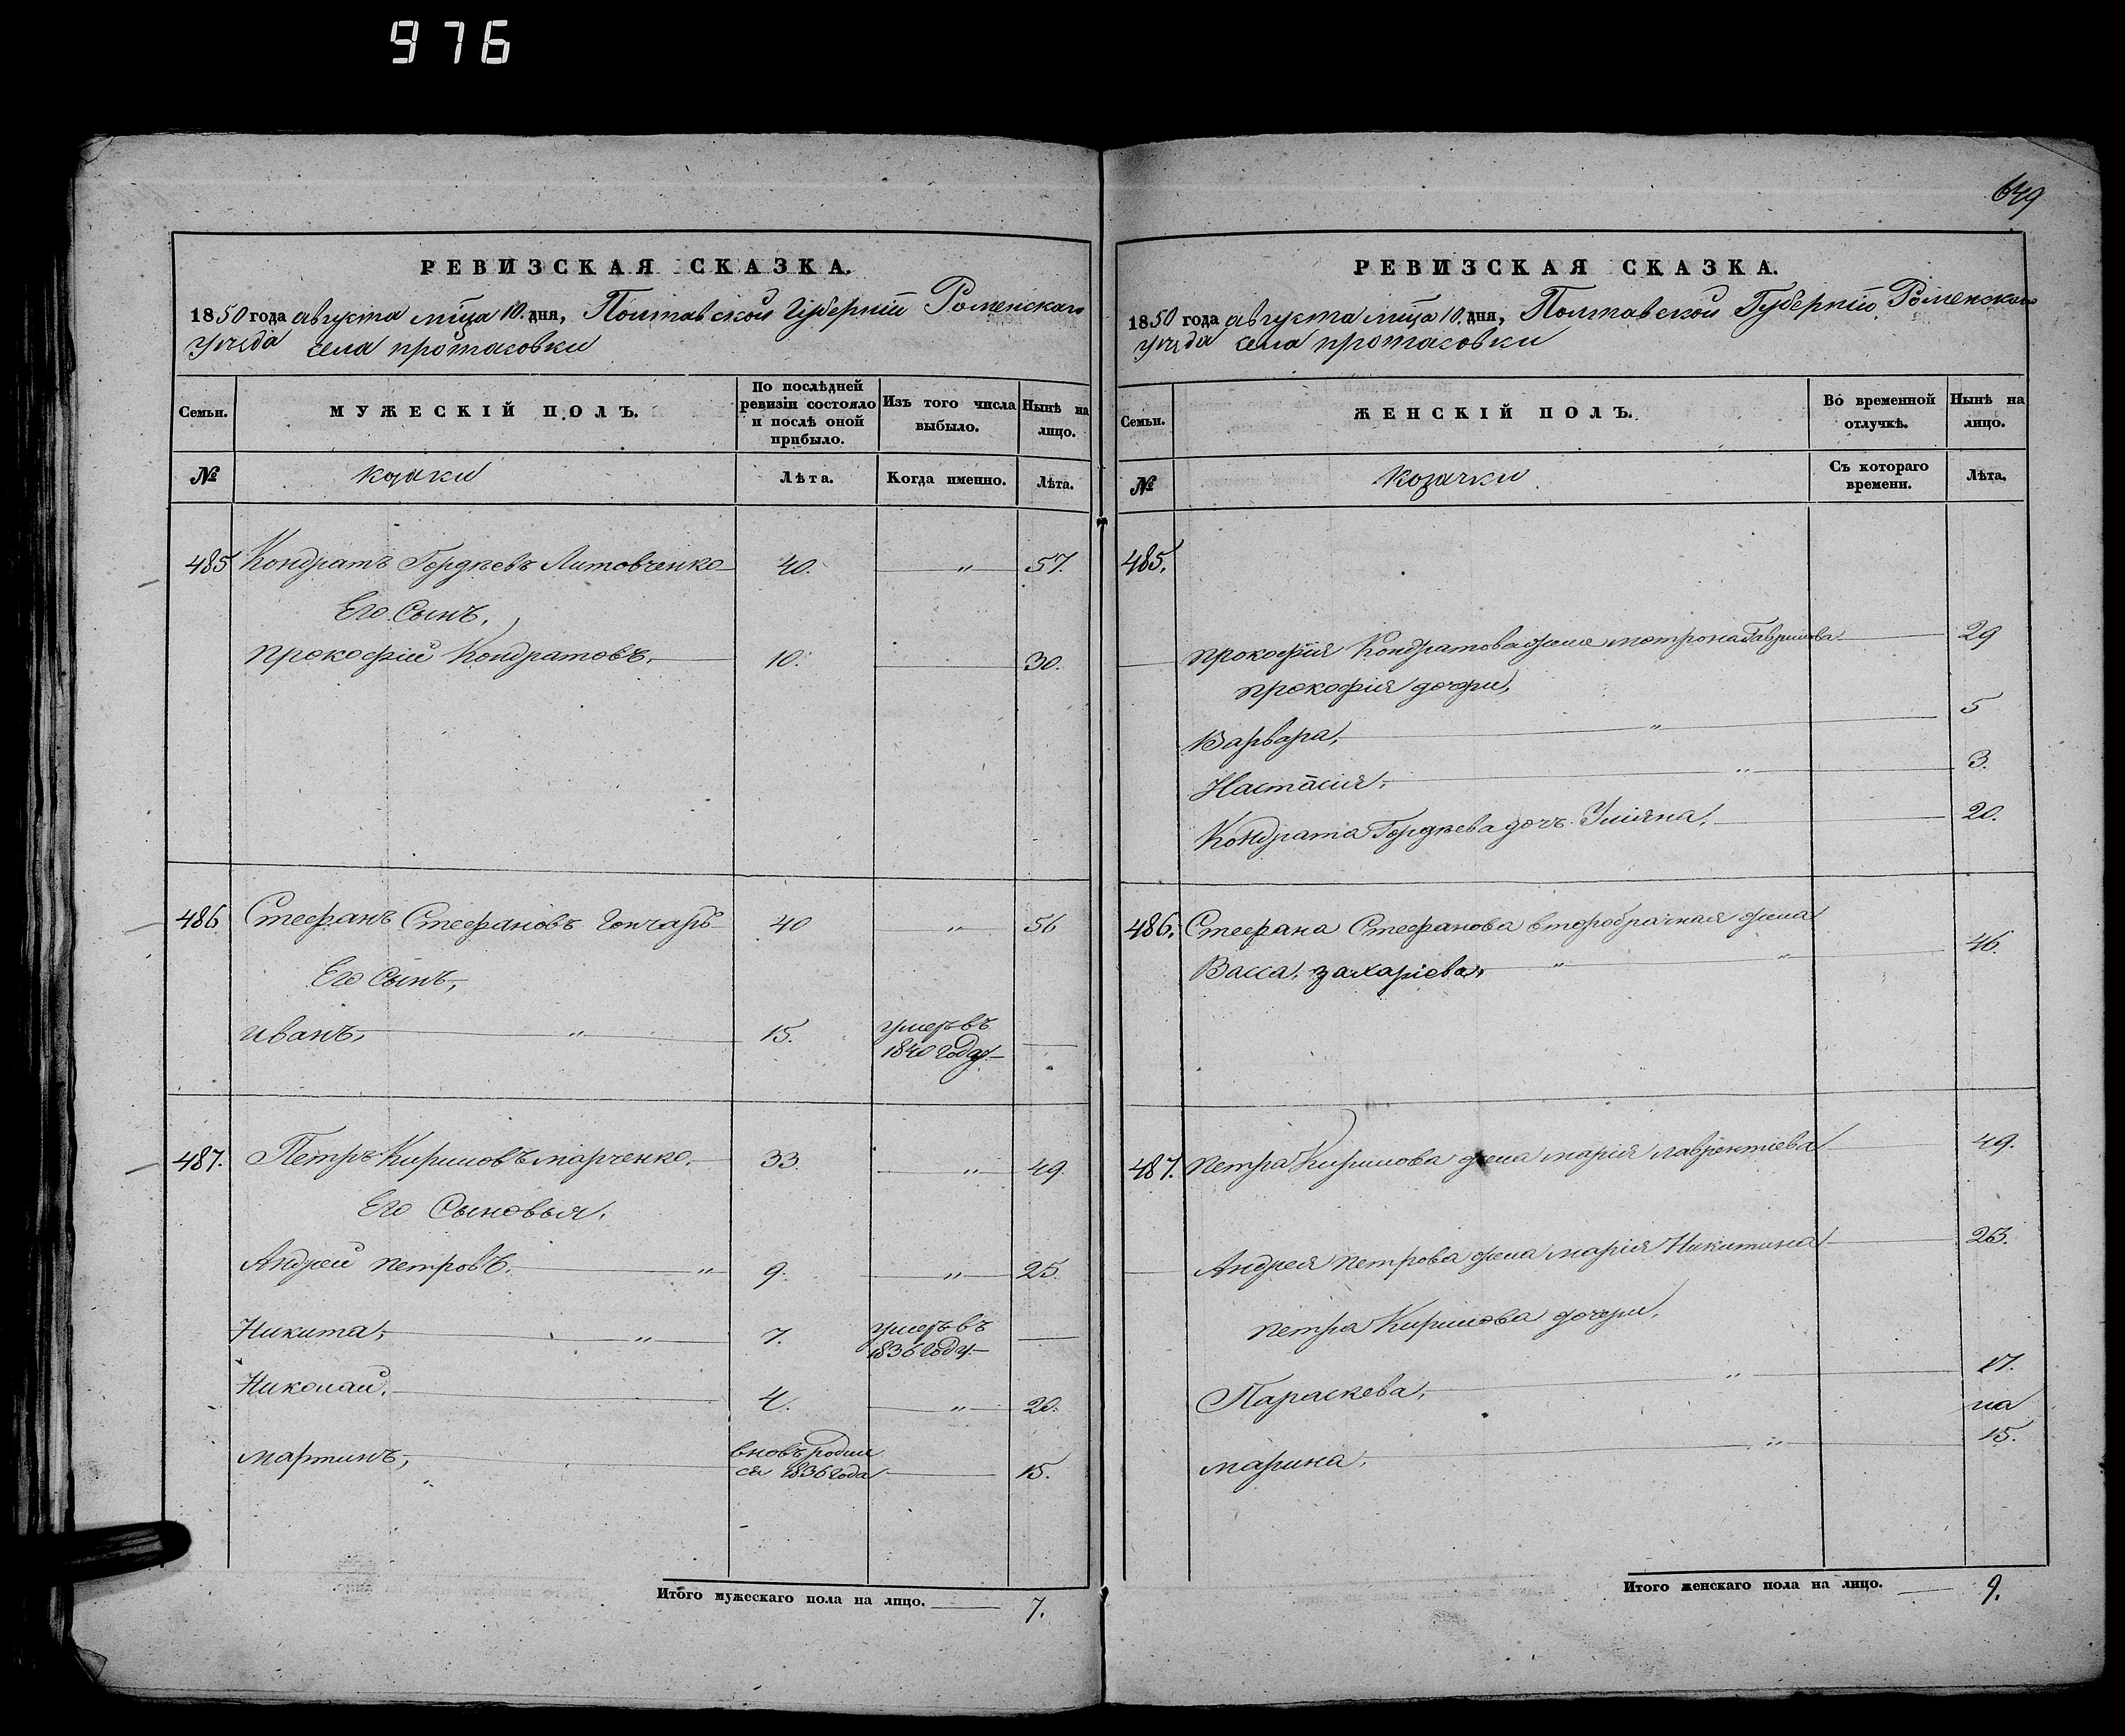 976
РЕВИЗСКАЯ СКАЗКА.
1850 года августа мца 10. дня, Полтавской Губернии Роменскаго
уезда села протасовки
Семьи.
МУЖЕСКІЙ ПОЛЪ.
По послѣдней ревизіи состояло и послѣ оной прибыло.
Изъ того числа выбыло.
Нынѣ на лицо.
№
козаки
Лѣта.
Когда именно.
Лѣта.
485 Кондратъ Гордѣевъ Литовченко 40. " 57.
Его Сынъ,
прокофій Кондратовъ, 10. 30.
486 Стефанъ Стефановъ Гончаръ 40 " 56
Его Сынъ,
иванъ, " 15. умеръ въ
1840 году
487. Петръ Кириловъ марченко, 33. " 49.
Его Сыновья,
Андрей петровъ, " 9. " 25.
Никита, " 7. умеръ въ
1836 году
Николай, 4. " 20.
мартинъ, вновь родил
ся 1836 года 15.
Итого мужескаго пола на лицо. 7.
649
РЕВИЗСКАЯ СКАЗКА.
1850 года августа мца 10. дня, Полтавской Губернии Роменскаго
уезда села протасовки
Семьи.
ЖЕНСКІЙ ПОЛЪ.
Во временной отлучкѣ.
Нынѣ на лицо.
№
козачки
Съ котораго времени.
Лѣта.
485.
прокофія Кондратова жена мотрона Гаврилова 29
прокофія дочери,
Варвара, " 5
Настасия, " 3.
Кондрата Гордѣева дочь Улияна, 20.
486. Стефана Стефанова второбрачная жена
Васса захаріева, " " 46.
487. петра Кирилова жена марія лаврентіева 49.
Андрея петрова жена марія Никитина 23.
петра Кирилова дочери,
Параскева, " 17.
на
марина, " 15.
Итого женскаго пола на лицо. 9.